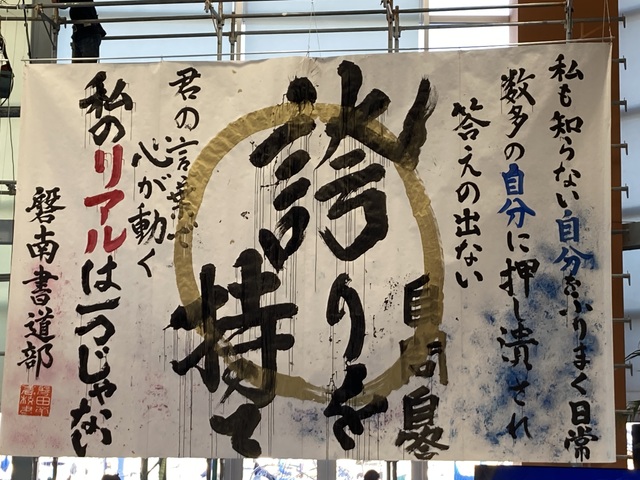 私も知らない自分をふりまく日常
数多の自分に押し潰され
答えの出ない
自問自答
誇りを
持て
君の言葉で
心が動く
私のリアルは一つじゃない
磐南書道部